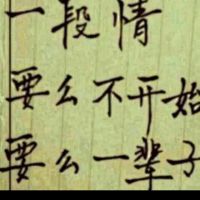 一段情
要么不开始
要么一辈子